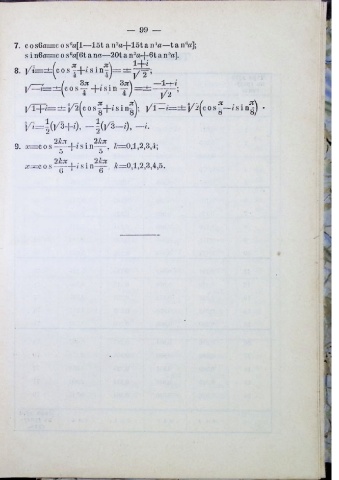 — 99 —
7. cos6a=cos⁶a[1—15tan²a+15tan⁴a—tan⁶a];
sin6a=cos⁶a[6tana—20tan³a+6tan⁵a].
8. √i=±(cos π/4+i sin π/4)=±(1+i)/√2;
√—i=±(cos 3π/4+i sin 3π/4)=±(—1+i)/√2;
√1+i=±∜2(cos π/8+i sin π/8); √1—i=±∜2(cos π/8—i sin π/8).
∛i=1/2(√3+i), —1/2(√3—i), —i.
9. x=cos 2kπ/5+i sin 2kπ/5, k=0,1,2,3,4;
x=cos 2kπ/6+i sin 2kπ/6 k=0,1,2,3,4,5.